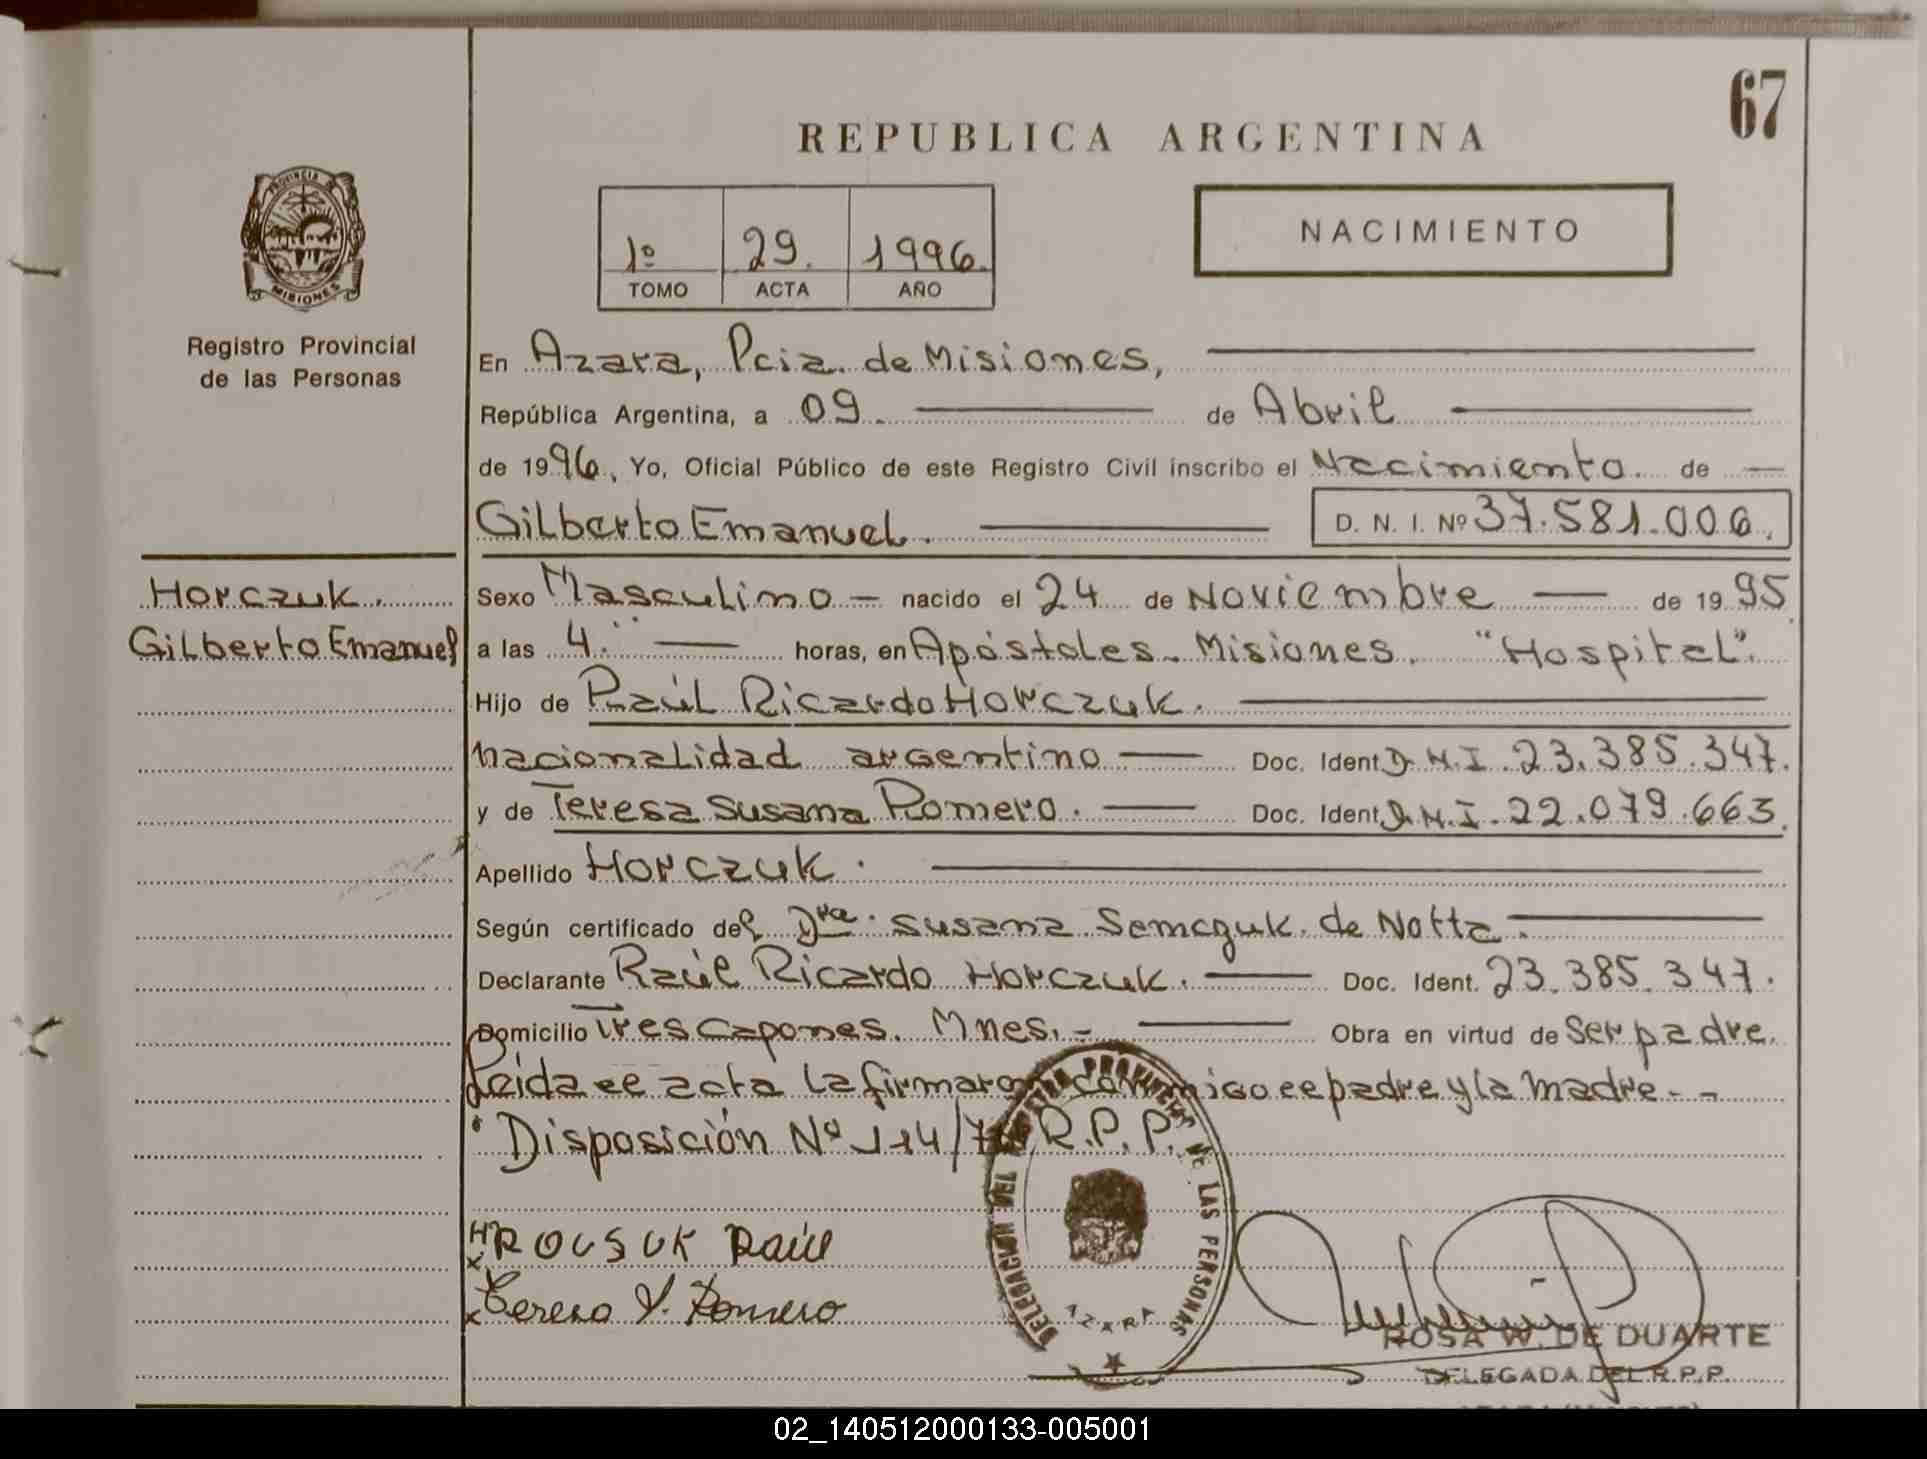 67
REPUBLICA ARGENTINA
PROVINCIA DE
MISIONES
Registro Provincial
de las Personas
1º 29. 1996.
TOMO ACTA AÑO
NACIMIENTO
En Azara, Pcia. de Misiones,
República Argentina, a 09. de Abril
de 1996, Yo, Oficial Público de este Registro Civil inscribo el Nacimiento. de
Gilberto Emanuel. D. N. I. Nº 37.581.006.
Horczuk.
Gilberto Emanuel
Sexo Masculino - nacido el 24 de Noviembre de 1995
a las 4. horas, en Apóstoles. Misiones. "Hospital".
Hijo de Raúl Ricardo Horczuk.
nacionalidad argentino Doc. Ident D.N.I. 23.385.347.
y de Teresa Susana Romero. Doc. Ident D.N.I. 22.079.663.
Apellido Horczuk.
Según certificado del Dra. Susana Semczuk. de Notta.
Declarante Raúl Ricardo Horczuk. Doc. Ident. 23.385.347.
Domicilio Tres Capones. Mnes. - Obra en virtud de Ser padre.
Leída el acta la firmaron conmigo el padre y la madre. -
Disposición Nº 114/ R.P.P.
HROUSUK RAúl
x Teresa S. Romero
DELEGACION DEL REGISTRO PROVINCIAL DE LAS PERSONAS
AZARA
ROSA W. DE DUARTE
DELEGADA DEL R.P.P.
02_140512000133-005001